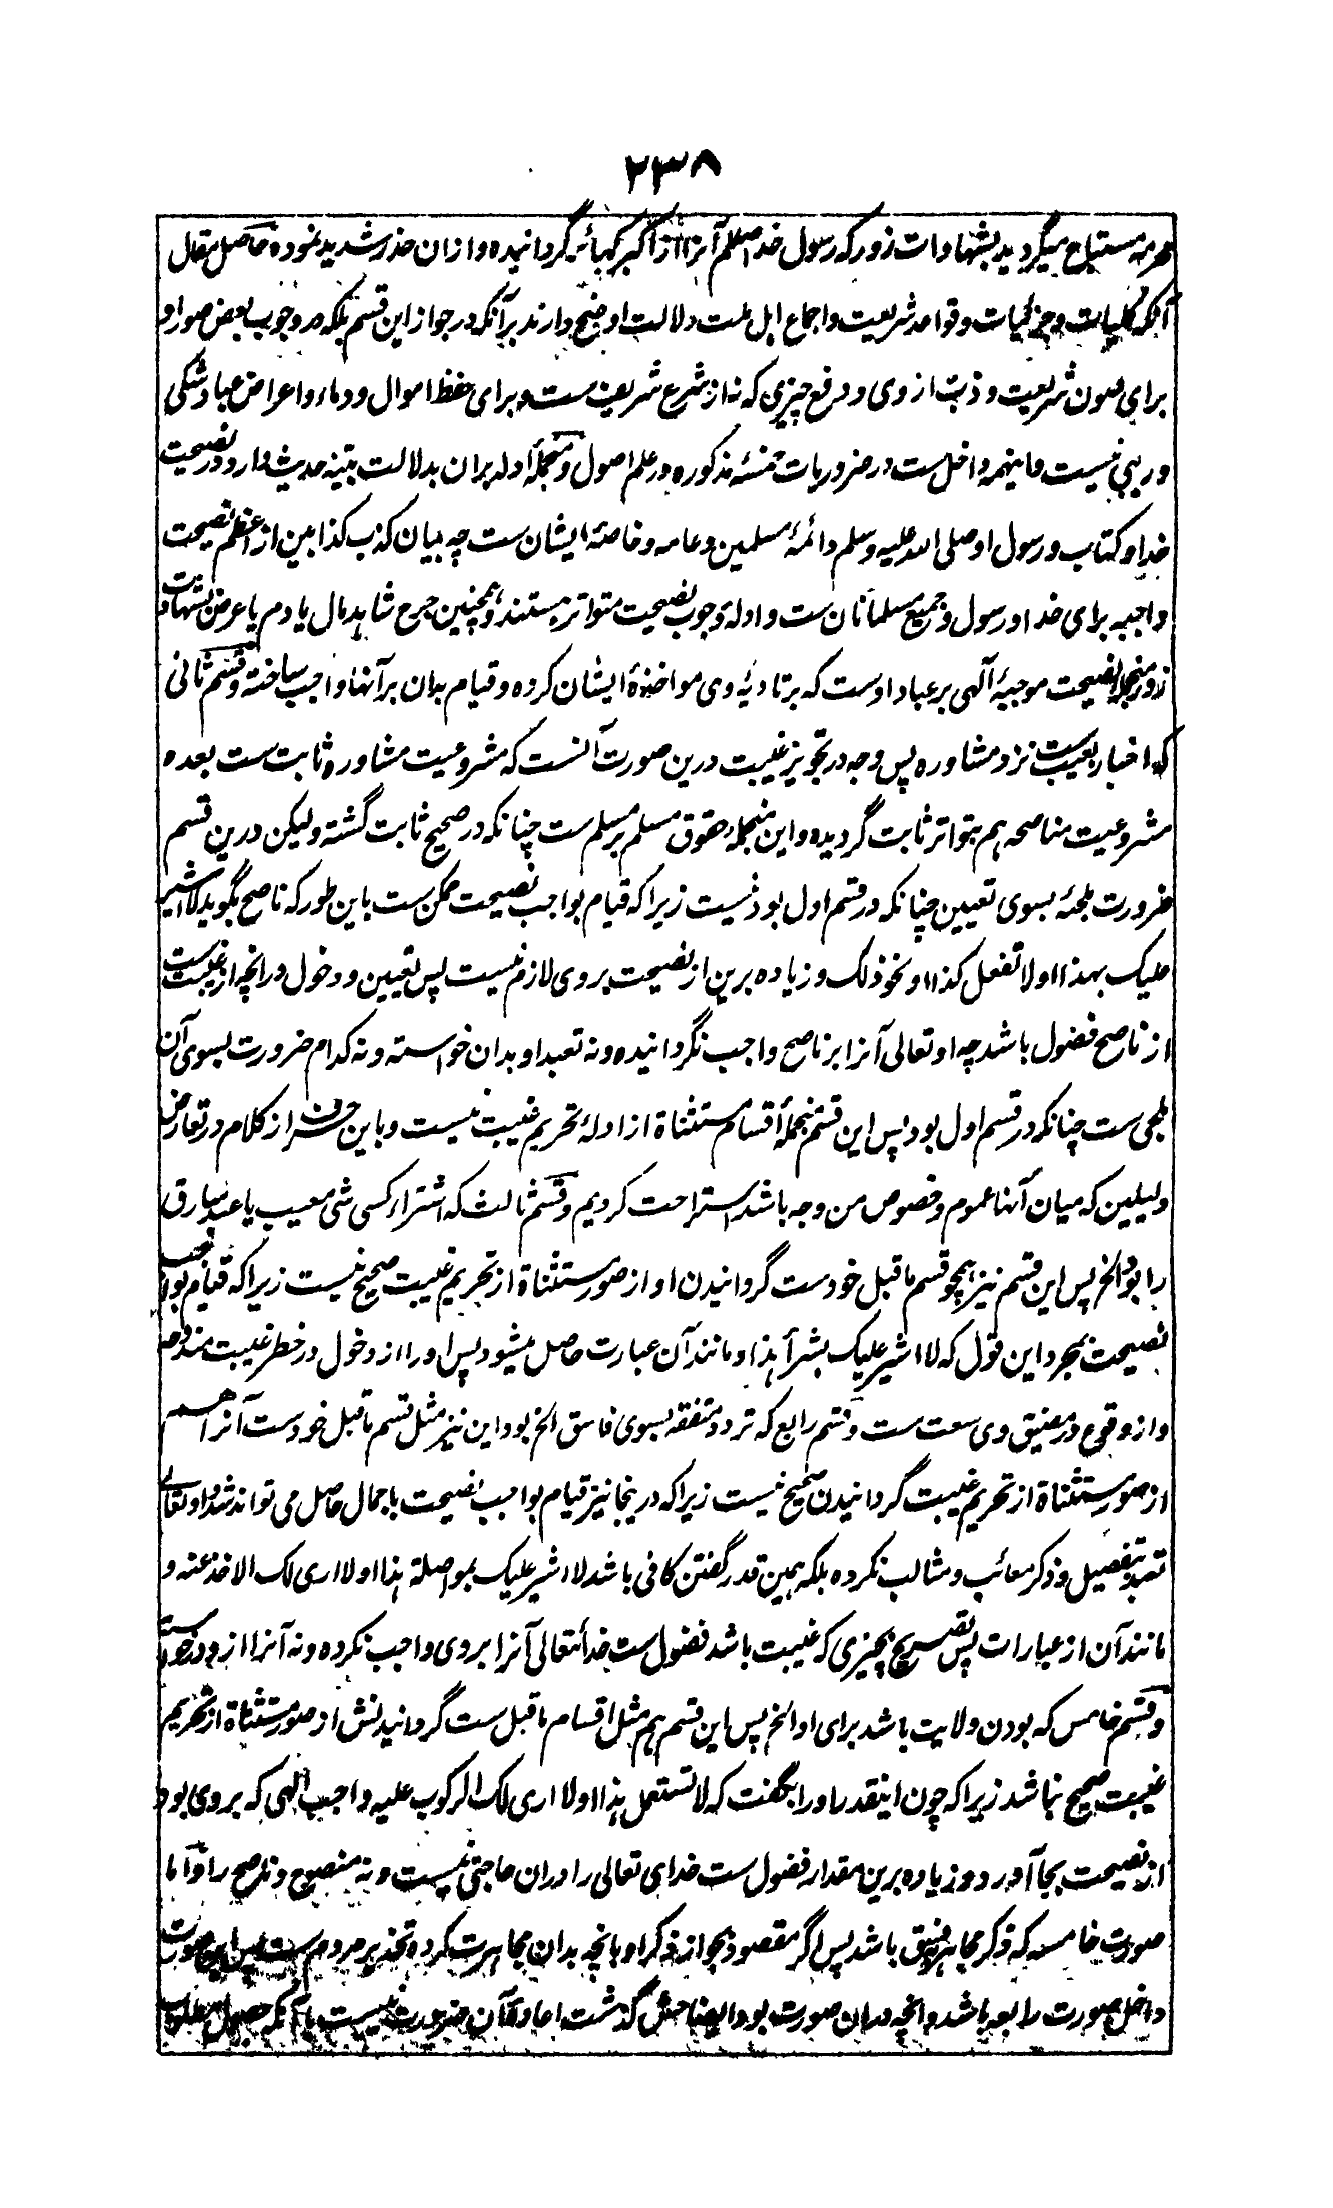 ۲۳۸
حرمه مستباح میگردید بشهادات زور که رسول خدا صللم آنرا از اکبر کبائر گردانیده و ازان حذر شدید نموده حاصل مقال
آنکه کلیات و جزئیات و قواعد شریعت و اجماع اہل ملت دلالت اوضح دارند برآنکه در جواز این قسم بلکه در وجوب بعض صور او
برای صون شریعت و ذب از وی و دفع چیزی که نه از شرع شریف ست و برای حفظ اموال و دماء و اعراض عباد شکی
و ریبی نیست و اینهمه داخل ست در ضروریات خمسۂ مذکوره در علم اصول و منجملۂ ادله بران بدلالت بینه حدیث وارد در نصیحت
خدا و کتاب و رسول او صلی الله علیه وسلم و ائمۂ مسلمین و عامه و خاصۂ ایشان ست چه بیان کذب کذابین از اعظم نصیحت
واجبه برای خدا و رسول و جمیع مسلمانان ست و ادلۂ وجوب نصیحت متواتر هستند و همچنین جرح شاہد بمال یا دم یا عرض بشهادت
زور منجملۂ نصیحت موجبۂ آلهی بر عباد اوست که برتادیۂ وی مواخذۂ ایشان کرده و قیام بدان برآنها واجب ساخته و قسم ثانی
که اخبار بعیب ست نزد مشاوره پس وجه در تجویز غیبت درین صورت آنست که مشروعیت مشاوره ثابت ست بعده
مشروعیت مناصحه ہم بتواتر ثابت گردیده و این منجملۂ حقوق مسلم بر مسلم ست چنانکه در صحیح ثابت گشته ولیکن درین قسم
ضرورت ملجئه بسوی تعیین چنانکه در قسم اول بود نیست زیراکه قیام بواجب نصیحت ممکن ست باین طور که ناصح بگوید لا اشیر
علیک بهذا او لا تفعل کذا او نحو ذلک و زیاده برین از نصیحت بروی لازم نیست پس تعیین و دخول در انچه از غیبت ست
از ناصح فضول باشد چه او تعالی آنرا بر ناصح واجب نگردانیده و نه تعبد او بدان خواسته و نه کدام ضرورت بسوی آن
ملجی ست چنانکه در قسم اول بود پس این قسم منجملۂ اقسام مستثناة از ادلۂ تحریم غیبت نیست و باین حرف از کلام در تعارض
دلیلین که میان آنها عموم و خصوص من وجه باشد استراحت کردیم و قسم ثالث که اشترار کسی شی معیب یا عبد سارق
را بود الخ پس این قسم نیز ہمچو قسم ماقبل خودست گردانیدن او از صور مستثناة از تحریم غیبت صحیح نیست زیراکه قیام بواجب
نصیحت بمجرد این قول که لا اشیر علیک بشرا ہذا و مانند آن عبارت حاصل میشود پس او را از دخول در خطر غیبت مندوحه
و از وقوع در مضیق وی سعت ست و قسم رابع که تردد متفقه بسوی فاسق الخ بود این نیز مثل قسم ماقبل خودست آنرا ہم
از صور مستثناة از تحریم غیبت گردانیدن صحیح نیست زیراکه درینجا نیز قیام بواجب نصیحت باجمال حاصل می تواند شد و او تعالی
تعبد بتفصیل و ذکر معائب و مثالب نکرده بلکه ہمین قدر گفتن کافی باشد لا اشیر علیک بمواصلة ہذا او لا اری لک الاخذ عنه و
مانند آن از عبارات پس تصریح بچیزی که غیبت باشد فضول ست خدا تعالی آنرا بروی واجب نکرده و نه آنرا از وی درخواست
و قسم خامس که بودن ولایت باشد برای او الخ پس این قسم ہم مثل اقسام ماقبل ست گردانیدنش از صور مستثناة از تحریم
غیبت صحیح نباشد زیراکه چون اینقدر او را بگفت که لا تستعمل ہذا او لا اری لک الرکوب علیه واجب الهی که بروی بود
از نصیحت بجا آورد و زیاده برین مقدار فضول ست خدای تعالی را دران حاجتی نیست و نه منصوح و ناصح را و اما
صورت خامسه که ذکر مجاہر بفسق باشد پس اگر مقصود بجواز ذکر او بانچه بدان مجاہرت کرده تحذیر مردم ست پس این صورت
داخل صورت رابعه باشد و انچه دران صورت بود ایضاحش گذشت اعادۀ آن ضرورت نیست با آنکه حصول مطلوب